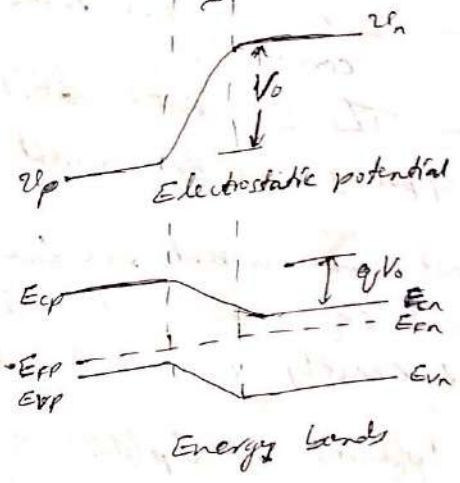 Vn
V₀
Vp
Electrostatic potential
Ecp
qV₀
Ecn
EFn
EFp
Evp
Evn
Energy bands